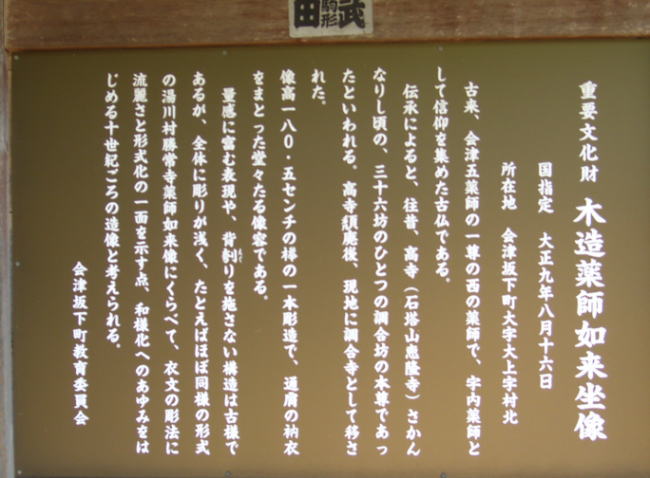 武田
駒形
重要文化財 木造薬師如来坐像
国指定 大正九年八月十六日
所在地 会津坂下町大字大上字村北
古来、会津五薬師の一尊の西の薬師で、宇内薬師と
して信仰を集めた古仏である。
伝承によると、往昔、高寺（石塔山恵隆寺）さかん
なりし頃の、三十六坊のひとつの調合坊の本尊であっ
たといわれる。高寺頽廃後、現地に調合寺として移さ
れた。
像高一八〇・五センチの欅の一本彫造で、通肩の衲衣
をまとった堂々たる像容である。
量感に富む表現や、背刳りを施さない構造は古様で
あるが、全体に彫りが浅く、たとえばほぼ同様の形式
の湯川村勝常寺薬師如来像にくらべて、衣文の彫法に
流麗さと形式化の一面を示す点、和様化へのあゆみをは
じめる十世紀ごろの造像と考えられる。
会津坂下町教育委員会